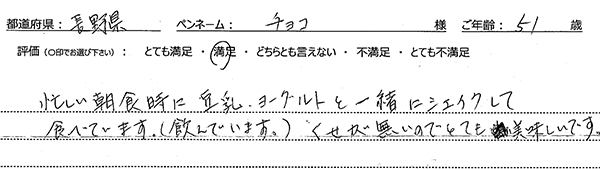 都道府県： 長野県 ペンネーム： チョコ 様 ご年齢： 51 歳
評価（○印でお選び下さい）： とても満足 ・ 満足 ・ どちらとも言えない ・ 不満足 ・ とても不満足
忙しい朝食時に豆乳・ヨーグルトと一緒にシェイクして
食べています。（飲んでいます。） くせが無いのでとても美味しいです。